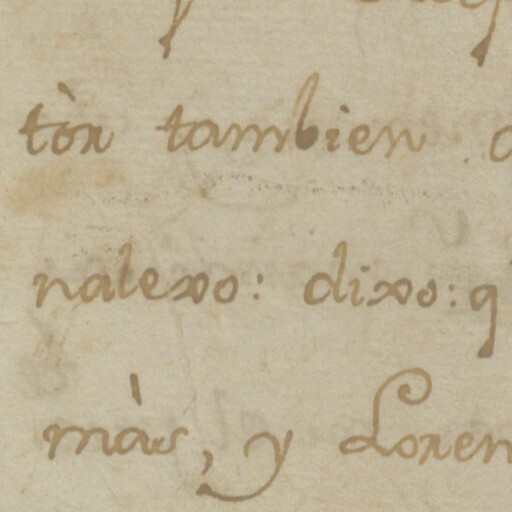 tòr tambien
nalexo: dixo: q
màs, y Loren